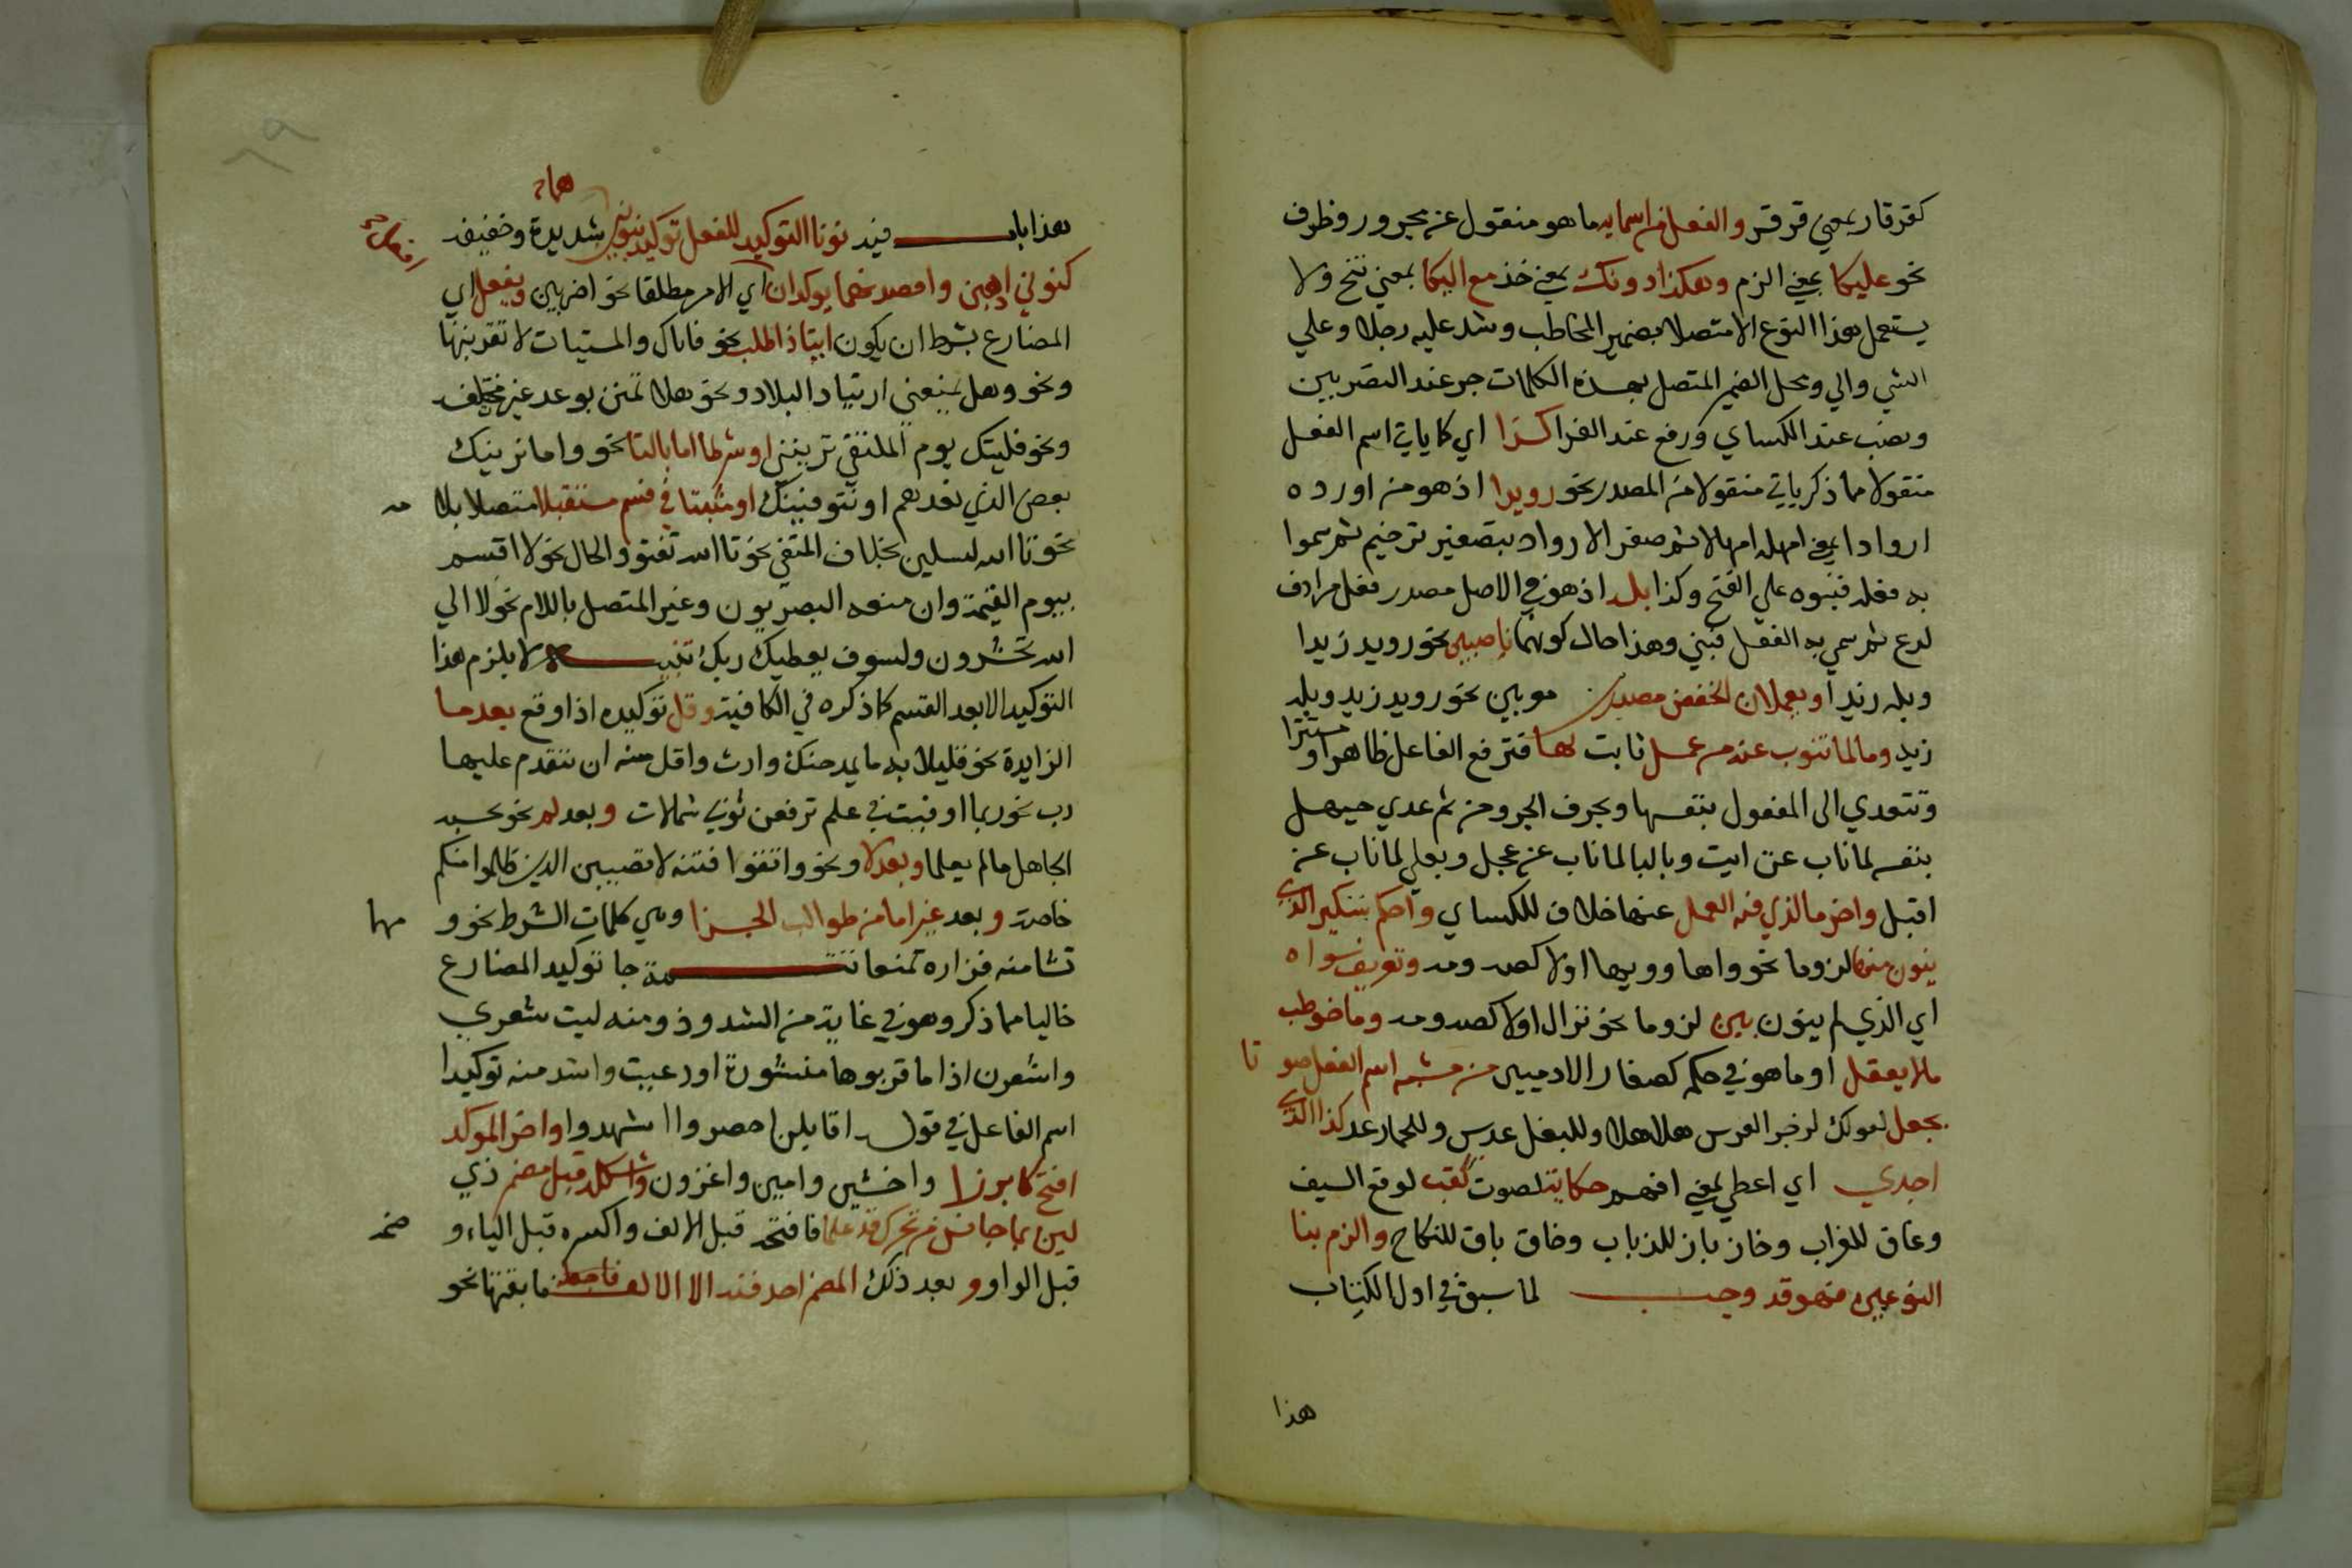 كقرقار بمعني قرقر والفعل من اسمايه ما هو منقول عن مجرور وظرف
نحو عليكا بمعني الزم وهكذا دونك بمعني خذ مع اليكا بمعني تنح ولا
يستعمل هذا النوع الا متصلا بضمير المخاطب وشذ عليه رجلا وعلي
الشي والي ومحل الضمير المتصل بهذه الكلمات جر عند البصريين
ونصب عند الكساي ورفع عند الفرا كذا اي كما ياتي اسم الفعل
منقولا مما ذكر ياتي منقولا من المصدر نحو رويدا اذ هو من اروده
اروادا بمعني امهله امهالا ثم صغر الارواد بتصغير ترخيم ثم سموا
به فعله فبنوه علي الفتح وكذا بله اذ هو في الاصل مصدر فعل مرادف
لدع ثم سمي به الفعل فبني وهذا حال كونهما ناصبين نحو رويد زيدا
وبله زيدا ويعملان الخفض مصدرين معربين نحو رويد زيد وبله
زيد وما لما تنوب عنه من عمل ثابت لها فترفع الفاعل ظاهرا ومستترا
وتتعدي الى المفعول بنفسها وبحرف الجر ومن ثم عدي حيهل
بنفسه لما ناب عن ايت وبالبا لما ناب عن عجل وبعلي لما ناب عن
اقبل واخر ما لذي فيه العمل عنها خلافا للكساي واحكم بتنكير الذي
ينون منها لزوما نحو واها وويها اولا كصه ومه وتعريف سواه
اي الذي لم ينون بين لزوما نحو نزال اولا كصه ومه وما خوطب
ما لا يعقل او ما هو في حكمه كصغار الادميين من مشبه اسم الفعل صوتا
يجعل لقولك لزجر الفرس هلا هلا وللبغل عدس وللحمار عد كذا الذي
اجدي اي اعطي بمعني افهم حكاية لصوت كقب لوقع السيف
وغاق للغراب وخاز باز للذباب وخاق باق للنكاح والزم بنا
النوعين فهو قد وجب لما سبق في اول الكتاب
هذا
هما
هذا باب فيه نونا التوكيد للفعل توكيد بنونين شديدة وخفيفة
كنوني اذهبن واقصدنهما يوكدان اي الامر مطلقا نحو اضربين ويفعل اي
المضارع بشرط ان يكون اتيا ذا طلب نحو فاياك والميتات لا تقربنها
ونحو وهل يمنعني ارتياد البلاد ونحو هلا تمنن بوعد غير مخلفة
ونحو فليتك يوم الملتقي ترينني او شرطا اما بالتا نحو واما نرينك
بعض الذي نعدهم او نتوفينك او مثبتا في قسم مستقبلا متصلا بلامه
نحو تا الله لتسلين بخلاف المنفي نحو تا الله تفتو والحال نحو لا اقسم
بيوم القيمة وان منعه البصريون وغير المتصل باللام نحو لا الي
الله تحشرون ولسوف يعطيك ربك تنبيه لا يلزم هذا
التوكيد الا بعد القسم كما ذكره في الكافية وقل توكيده اذا وقع بعد ما
الزايدة نحو قليلا به ما يحمدنك وارث واقل منه ان تتقدم عليها
رب نحو ربما اوفيت في علم ترفعن ثوبي شمالات وبعد لم نحو يحسبه
الجاهل ما لم يعلما وبعد لا ونحو واتقوا فتنة لا تصيبن الذين ظلموا منكم
خاصة وبعد غير اما من طوالب الجزا وهي كلمات الشرط نحو ومهما
تشا منه فزارة تمنعا تتمة جا توكيد المضارع
خاليا مما ذكر وهو في غاية من الشذوذ ومنه ليت شعري
واشعرن اذا ما قربوها منشورة او دعيت واشد منه توكيدا
اسم الفاعل في قوله اقايلن احضروا الشهودا واخر الموكد
افتح كابرزا واخشين وارمين واغزون واشكله قبل مضمر ذي
لين بما جانس من تحرك قد علما فافتحه قبل الالف واكسره قبل الياء وضمه
قبل الواو وبعد ذلك المضمر احذفنه الا الالف فابقها نحو